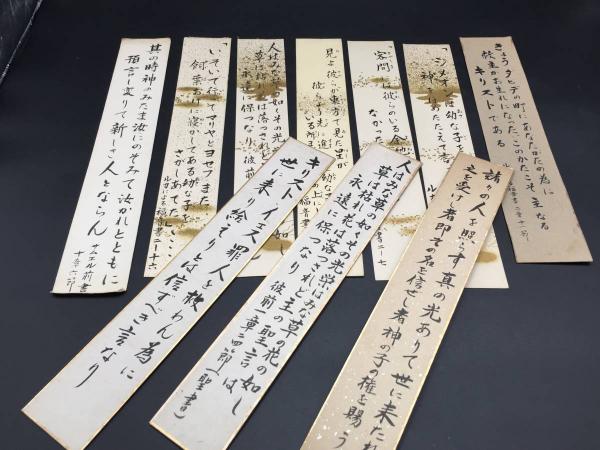 きょうダビデの町にあなたがたの為に
救主がお生れになった、このかたこそ主なる
キリストである
「シメオンは幼な子を
神をほめたたえて言
「客間には彼らのいる余地が
なかった
見よ彼らが東方で見た星が
彼らより先に進
幼な
人はみな草の如しその光
草は枯れ花は落つされど
永遠に保つなり
彼前
「いそいで行ってマリヤとヨセフまた
飼葉おけに寝かしてある幼な子を
さがしあてた」
ルカによる福音書二ノ十六
其の時神のみたま汝にのぞみて汝かれとともに
預言し変りて新しき人とならん
サムエル前書
十章六節
諸々の人を照す真の光ありて世に来たれ
之を受け者即その名を信ぜし者神の子の権を賜う
人はみな草の如しその光栄はみな草の花の如し
草は枯れ花は落つされど主の聖言は
永遠に保つなり
彼前一章二四節(聖書)
キリスト・イエス罪人を救わん為に
世に来り給えりとは信ずべき言なり